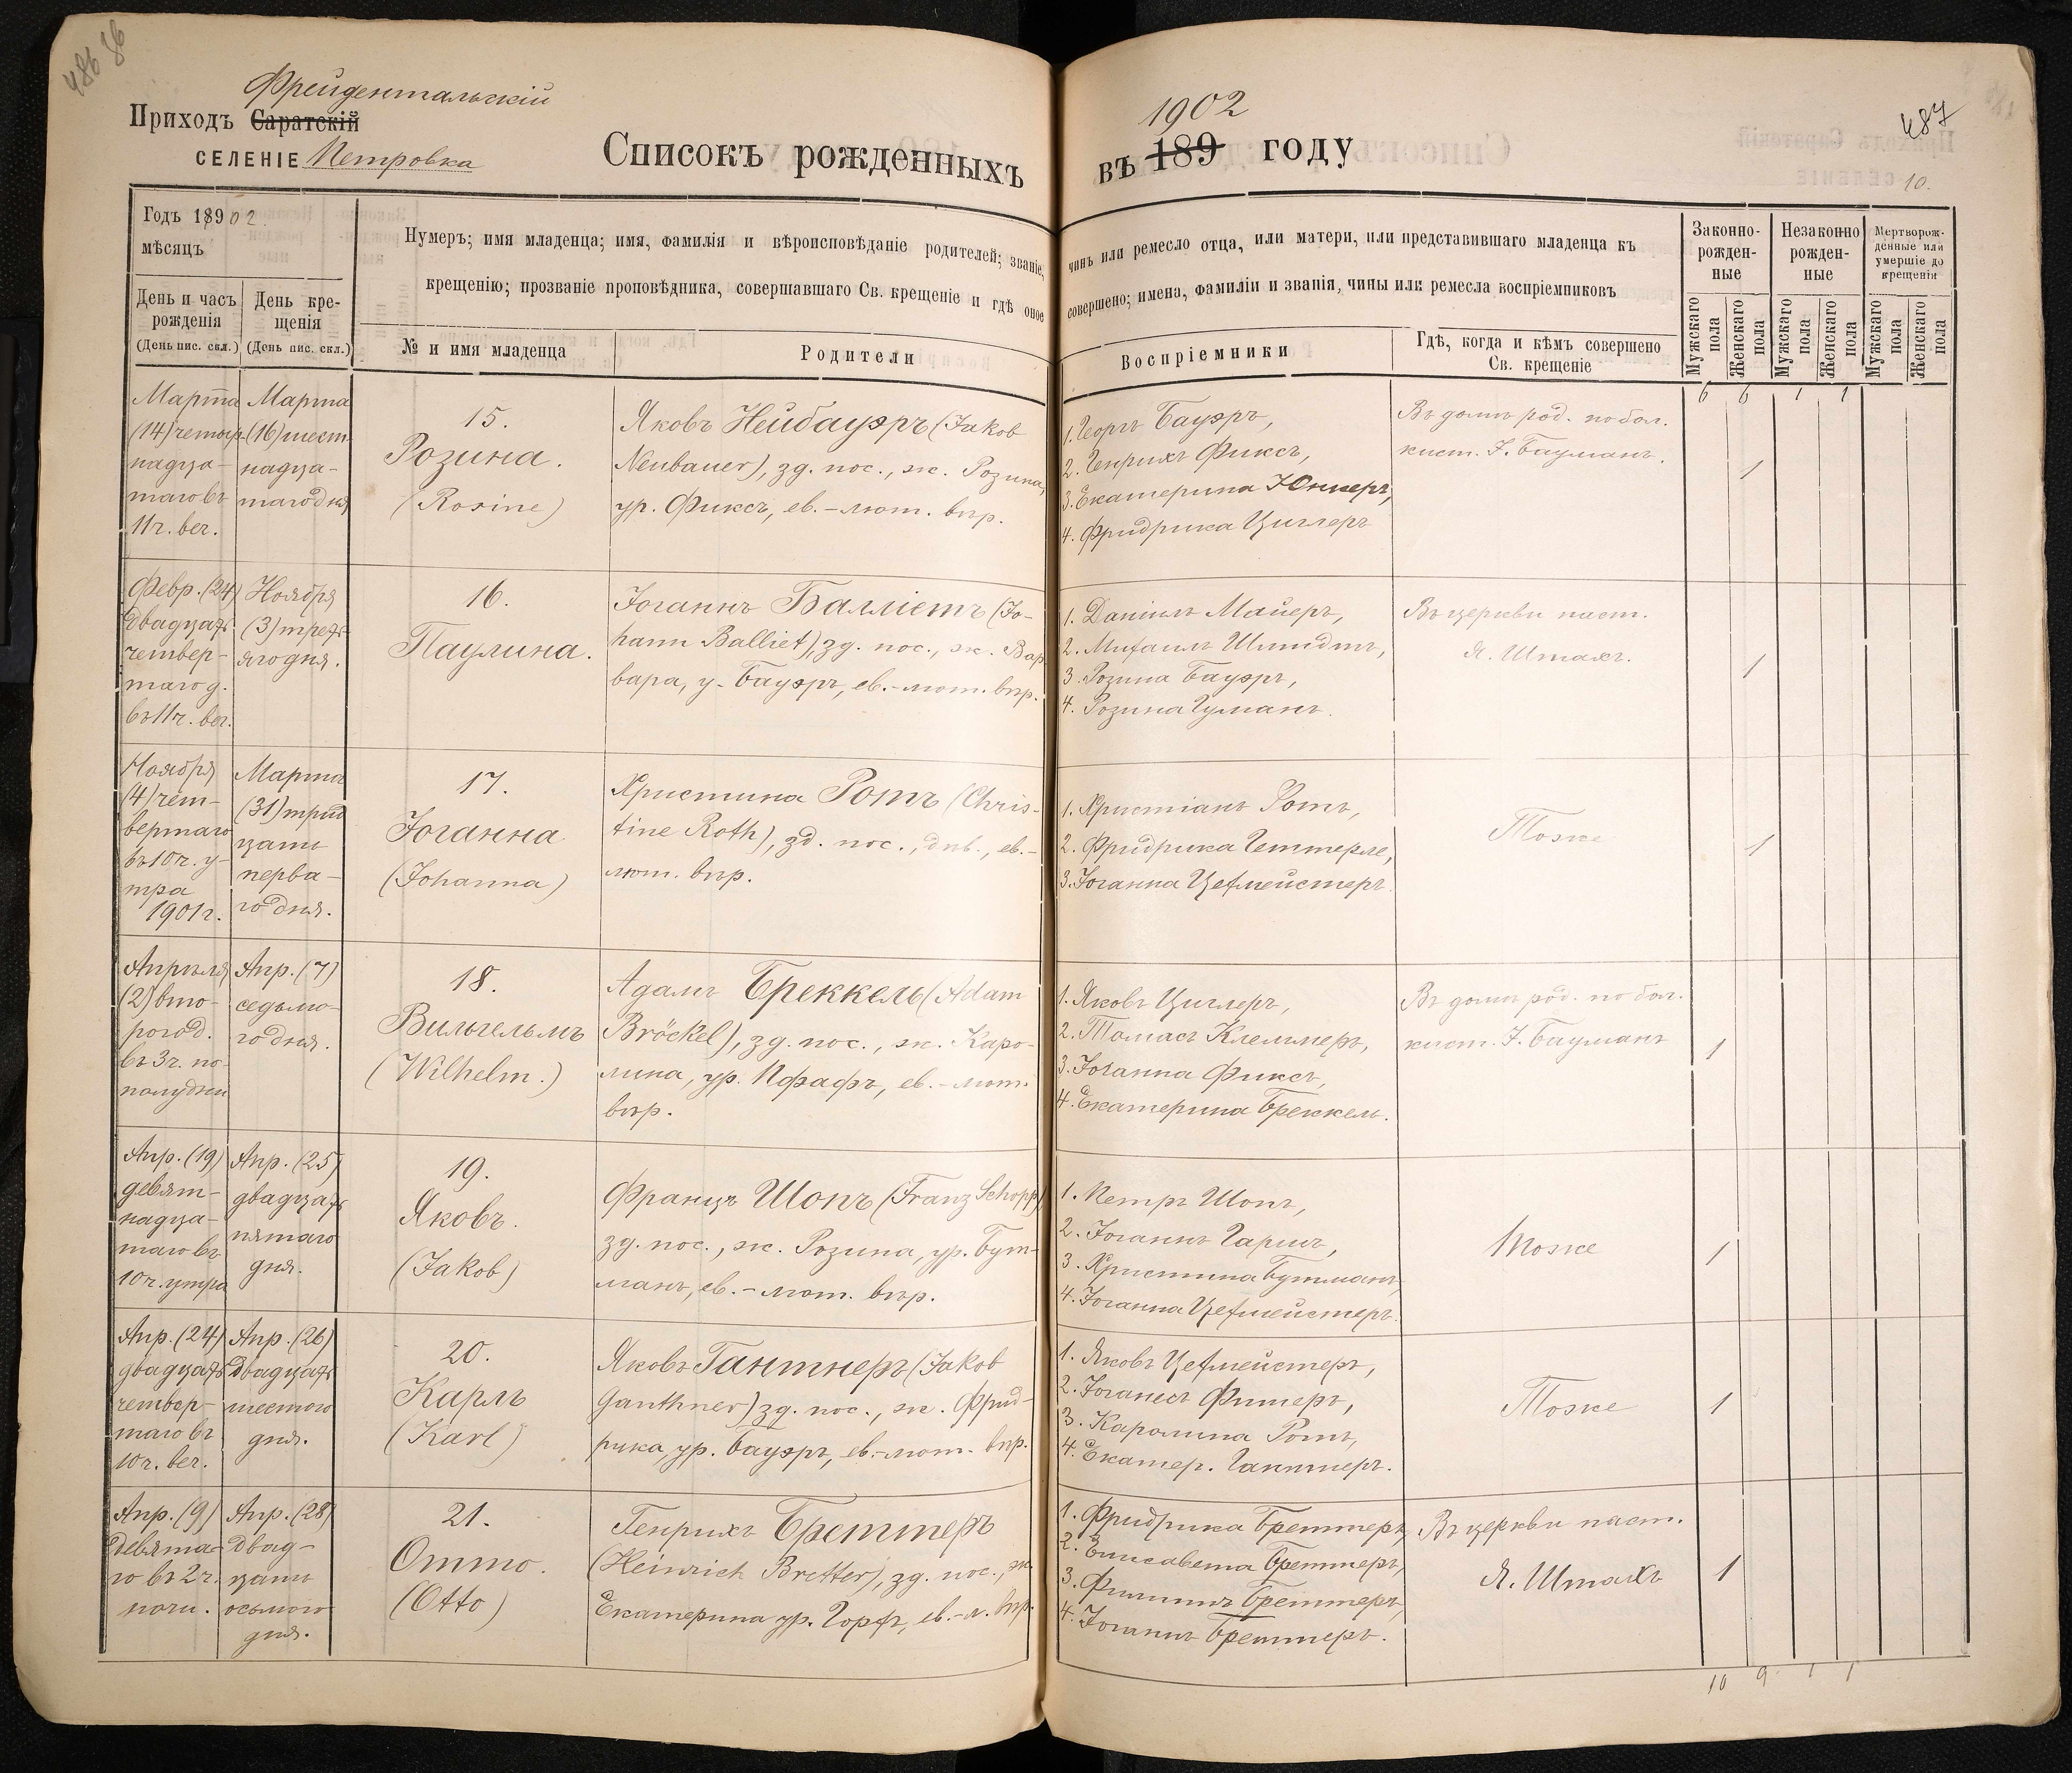 486 86
Фрейдентальскій
Приходъ Саратскій
СЕЛЕНІЕ Петровка
Списокъ рожденныхъ
1902
въ 189 году
487
10.
Годъ 18902.
мѣсяцъ
День и часъ рожденія
(День пис. скл.)
День крещенія
(День пис. скл.)
Нумеръ; имя младенца; имя, фамилія и вѣроисповѣданіе родителей; званіе,
крещенію; прозваніе проповѣдника, совершавшаго Св. крещеніе и гдѣ оное
№ и имя младенца
Родители
чинъ или ремесло отца, или матери, или представившаго младенца къ
совершено; имена, фамиліи и званія, чины или ремесла воспріемниковъ
Воспріемники
Гдѣ, когда и кѣмъ совершено
Св. крещеніе
Законно-
рожден-
ные
Незаконно
рожден-
ные
Мертворож-
денные или
умершіе до
крещенія
Мужскаго пола
Женскаго пола
Мужскаго пола
Женскаго пола
Мужскаго пола
Женскаго пола
6 6 1 1
Марта
(14) четыр
надца-
таго въ
11ч. веч.
Марта
(16) шест
надца-
таго дня
15.
Розина.
(Rosine)
Яковъ Нейбауэръ (Jakob
Neubauer), зд. пос., ж. Розина,
ур. Фиксъ, ев.-лют. вѣр.
1. Георгъ Бауэръ,
2. Генрихъ Фиксъ,
3. Екатерина Юнкеръ,
4. Фридрика Циглеръ
Въ домѣ род. по бол.
кист. І. Бауманъ.
1
Февр. (24)
двадцать
четвер-
таго д.
въ 11ч. веч.
Ноября
(3) треть-
яго дня.
16.
Паулина.
Іоганнъ Балліетъ (Jo-
hann Balliet), зд. пос., ж. Вар
вара, у. Бауэръ, ев.-лют. вѣр.
1. Даніилъ Майеръ,
2. Михаилъ Шмидтъ,
3. Розина Бауэръ,
4. Розина Гуманъ.
Въ церкви паст.
Я. Штахъ.
1
Ноября
(4) чет-
вертаго
въ 10ч. у-
тра
1901г.
Марта
(31) трид
цать
перва-
го дня.
17.
Іоганна
(Johanna)
Христина Ротъ (Chris-
tine Roth), зд. пос., дѣв., ев.-
лют. вѣр.
1. Христіанъ Ротъ,
2. Фридрика Геттерле,
3. Іоганна Цехмейстеръ.
Тоже
1
Апрѣля
(2) вто-
рого д.
въ 3ч. по
полудни
Апр. (7)
седьмо-
го дня.
18.
Вильгельмъ
(Wilhelm.)
Адамъ Бреккель (Adam
Bröckel), зд. пос., ж. Каро-
лина, ур. Пфафъ, ев.-лют.
вѣр.
1. Яковъ Циглеръ,
2. Томасъ Клеммеръ,
3. Іоганна Фиксъ,
4. Екатерина Бреккель.
Въ домѣ род. по бол.
кист. І. Бауманъ
1
Апр. (19)
девят-
надца-
таго въ
10ч. утра
Апр. (25)
двадцать
пятаго
дня.
19.
Яковъ.
(Jakob)
Францъ Шопъ (Franz Schopp)
зд. пос., ж. Розина, ур. Бут-
манъ, ев.-лют. вѣр.
1. Петръ Шопъ,
2. Іоганнъ Гаршъ,
3. Христина Бутманъ,
4. Іоганна Цехмейстеръ.
Тоже
1
Апр. (24)
двадцать
четвер-
таго въ
10ч. веч.
Апр. (26)
двадцать
шестого
дня.
20.
Карлъ
(Karl)
Яковъ Гантнеръ (Jakob
Ganthner) зд. пос., ж. Фрид-
рика, ур. Бауэръ, ев.-лют. вѣр.
1. Яковъ Цехмейстеръ,
2. Іоганесъ Фишеръ,
3. Каролина Ротъ,
4. Екатер. Гантнеръ.
Тоже
1
Апр. (9)
девята-
го въ 2ч.
ночи.
Апр. (28)
двад-
цать
осьмого
дня.
21.
Отто.
(Otto)
Генрихъ Бреттеръ
(Heinrich Bretter), зд. пос., ж.
Екатерина ур. Горхъ, ев.-л. вѣр.
1. Фридрика Бреттеръ,
2. Елисавета Бреттеръ,
3. Филиппъ Бреттеръ,
4. Іоганнъ Бреттеръ.
Въ церкви паст.
Я. Штахъ
1
10 9 1 1